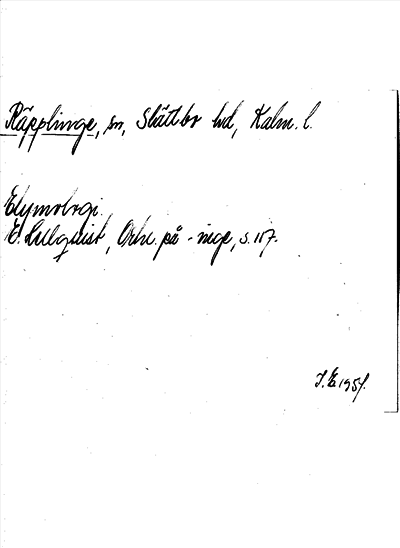 Räpplinge, sn, Slättbo hd, Kalm. l.
Etymologi.
E. Hellquist, Ortn. på -inge, s. 117.
I. E. 195